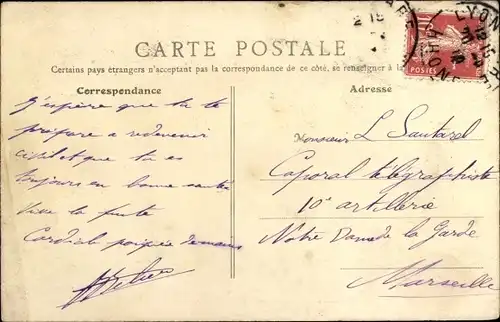 CARTE POSTALE
Certains pays étrangers n'acceptant pas la correspondance de ce côté, se renseigner à la
Correspondance
Adresse
J'espère que tu te
prépare a redevenir
civil et que tu es
toujours en bonne santé
Vive la fuite
Cordiale poignée de mains
Monsieur L Sautarel
Caporal télégraphiste
10e artillerie
Notre Dame de la Garde
Marseille
LYON
RHONE
POSTES